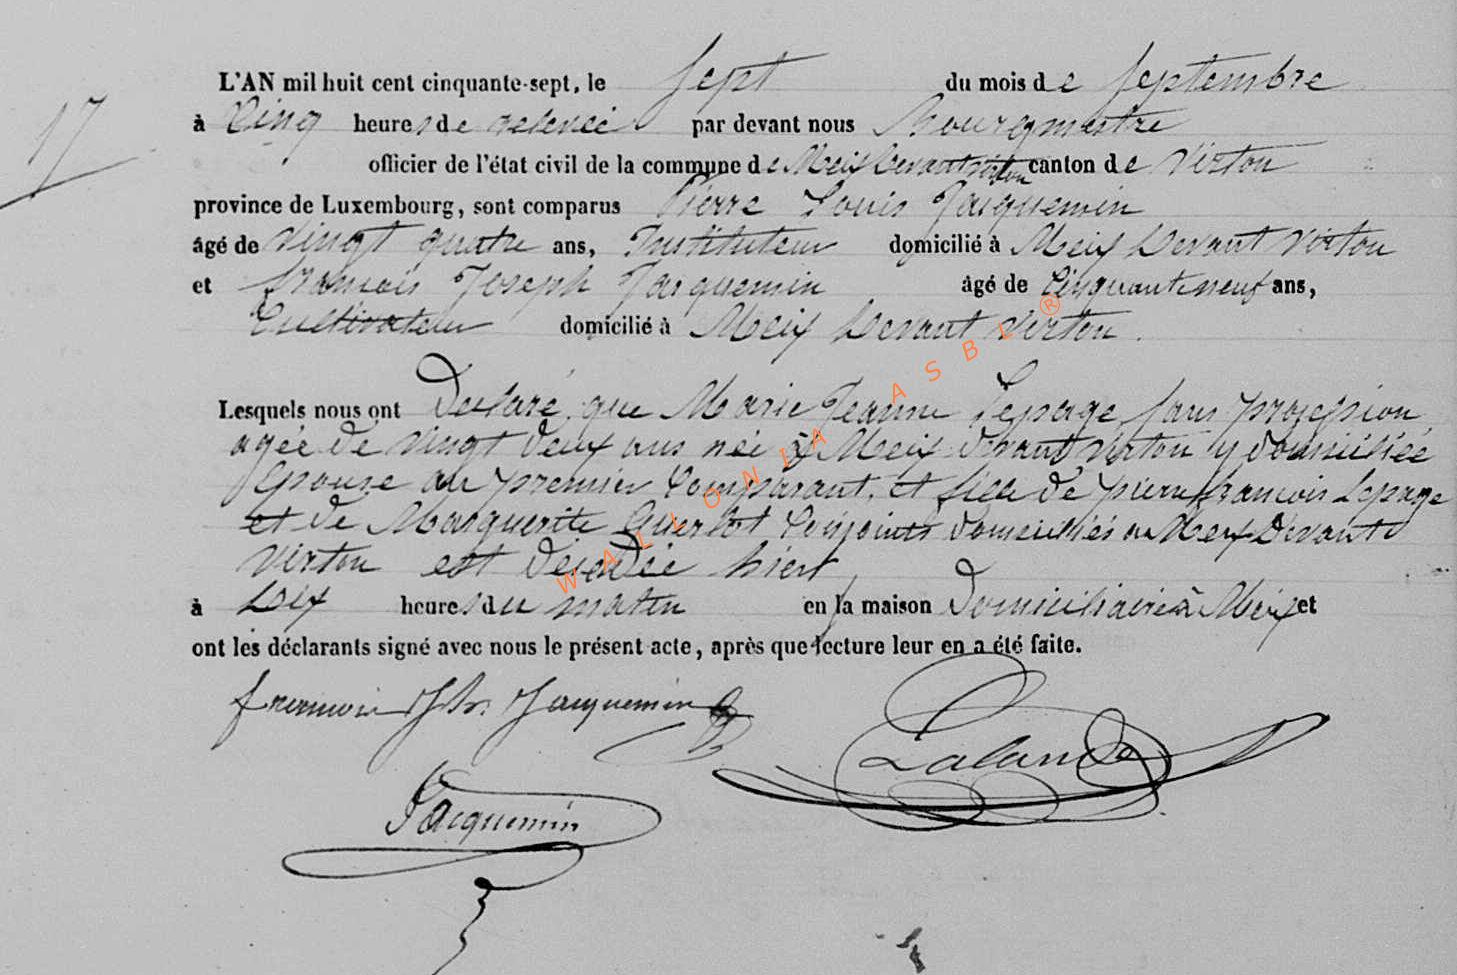 L'AN mil huit cent cinquante-sept, le Sept du mois de Septembre
17
à Cinq heures de relevée par devant nous Bourgmestre
officier de l'état civil de la commune de Meix Devant Virton canton de Virton
province de Luxembourg, sont comparus Pierre Louis Jacquemin
âgé de vingt quatre ans, Instituteur domicilié à Meix Devant Virton
et francois Joseph Jacquemin âgé de Cinquante neuf ans,
Cultivateur domicilié à Meix Devant Virton.
Lesquels nous ont Déclaré que Marie Jeanne Lepage sans profession
agée de vingt deux ans née à Meix devant Virton y domiciliée
Epouse du premier Comparant, et fille de pierre francois Lepage
et de Marguerite Conjoints domiciliés à Meix Devant
Virton est décédée hier
à Dix heures du matin en la maison Domiciliaire à Meix et
ont les déclarants signé avec nous le présent acte, après que lecture leur en a été faite.
francois Jh. Jacquemin
Lalande
Jacquemin
WALLONIA ASBL ®